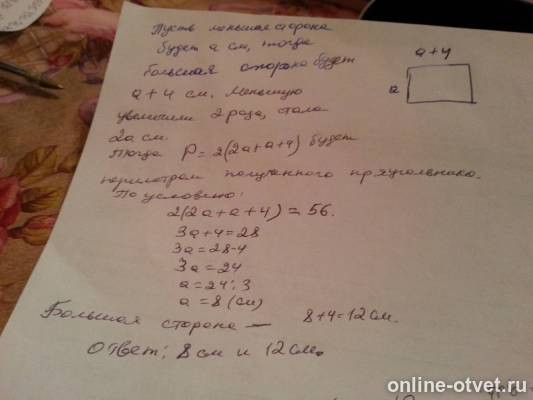 Пусть меньшая сторона
будет a см, тогда
большая сторона будет
a+4 см. Меньшую
увеличили 2 раза, стала
2a см.
Тогда P=2(2a+a+4) будет
периметром полученного прямоугольника.
По условию:
2(2a+a+4)=56.
3a+4=28
3a=28-4
3a=24
a=24:3
a=8 (см)
Большая сторона — 8+4=12 см.
Ответ: 8 см и 12 см.
a+4
a
online-otvet.ru